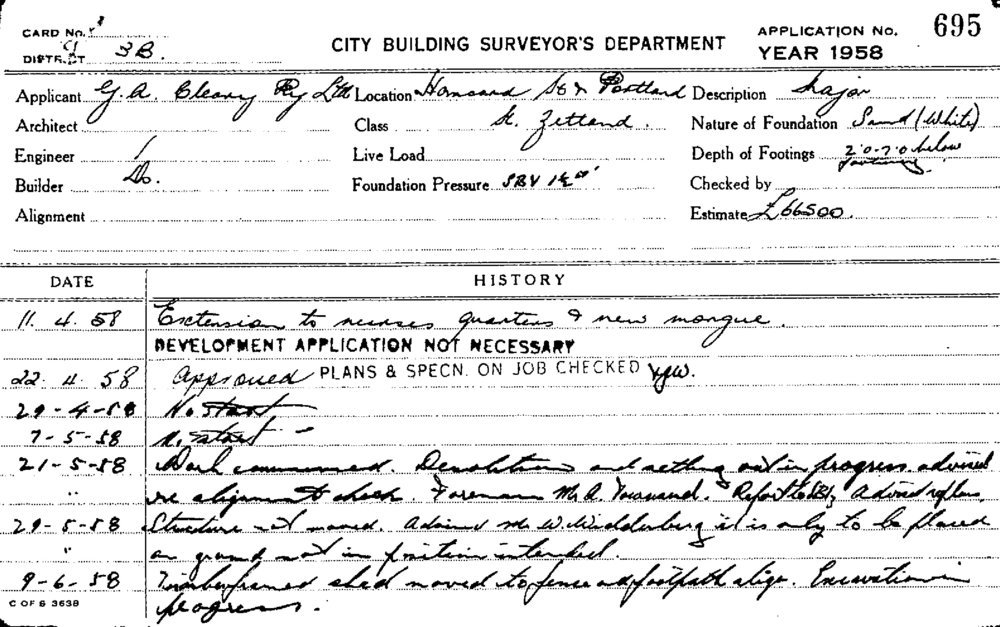 CARD No. 1
DISTRICT 9 3B.
CITY BUILDING SURVEYOR'S DEPARTMENT
APPLICATION No. 695
YEAR 1958
Applicant G. A. Cleary Pty Ltd Location Hansard St & Portland Description Major
Architect Class St. Zetland. Nature of Foundation Sand (White)
Engineer Live Load Depth of Footings 2'0-7'0 below
Builder Do. Foundation Pressure SBV Checked by
Alignment Estimate £66500.
DATE HISTORY
11. 4. 58 Extension to nurses quarters & new morgue.
DEVELOPMENT APPLICATION NOT NECESSARY
22. 4. 58 Approved PLANS & SPECN. ON JOB CHECKED
29-4-58 No start
7-5-58 No start
21-5-58 Work commenced. Demolition and setting out in progress advised
" re alignment check. Foreman Mr A. Report to Advised
29-5-58 Structure not moved. Advised Mr W. it is only to be placed
" on ground not in position intended.
9-6-58 Timber framed shed moved to fence and footpath align. Excavation in
progress.
C OF S 3638